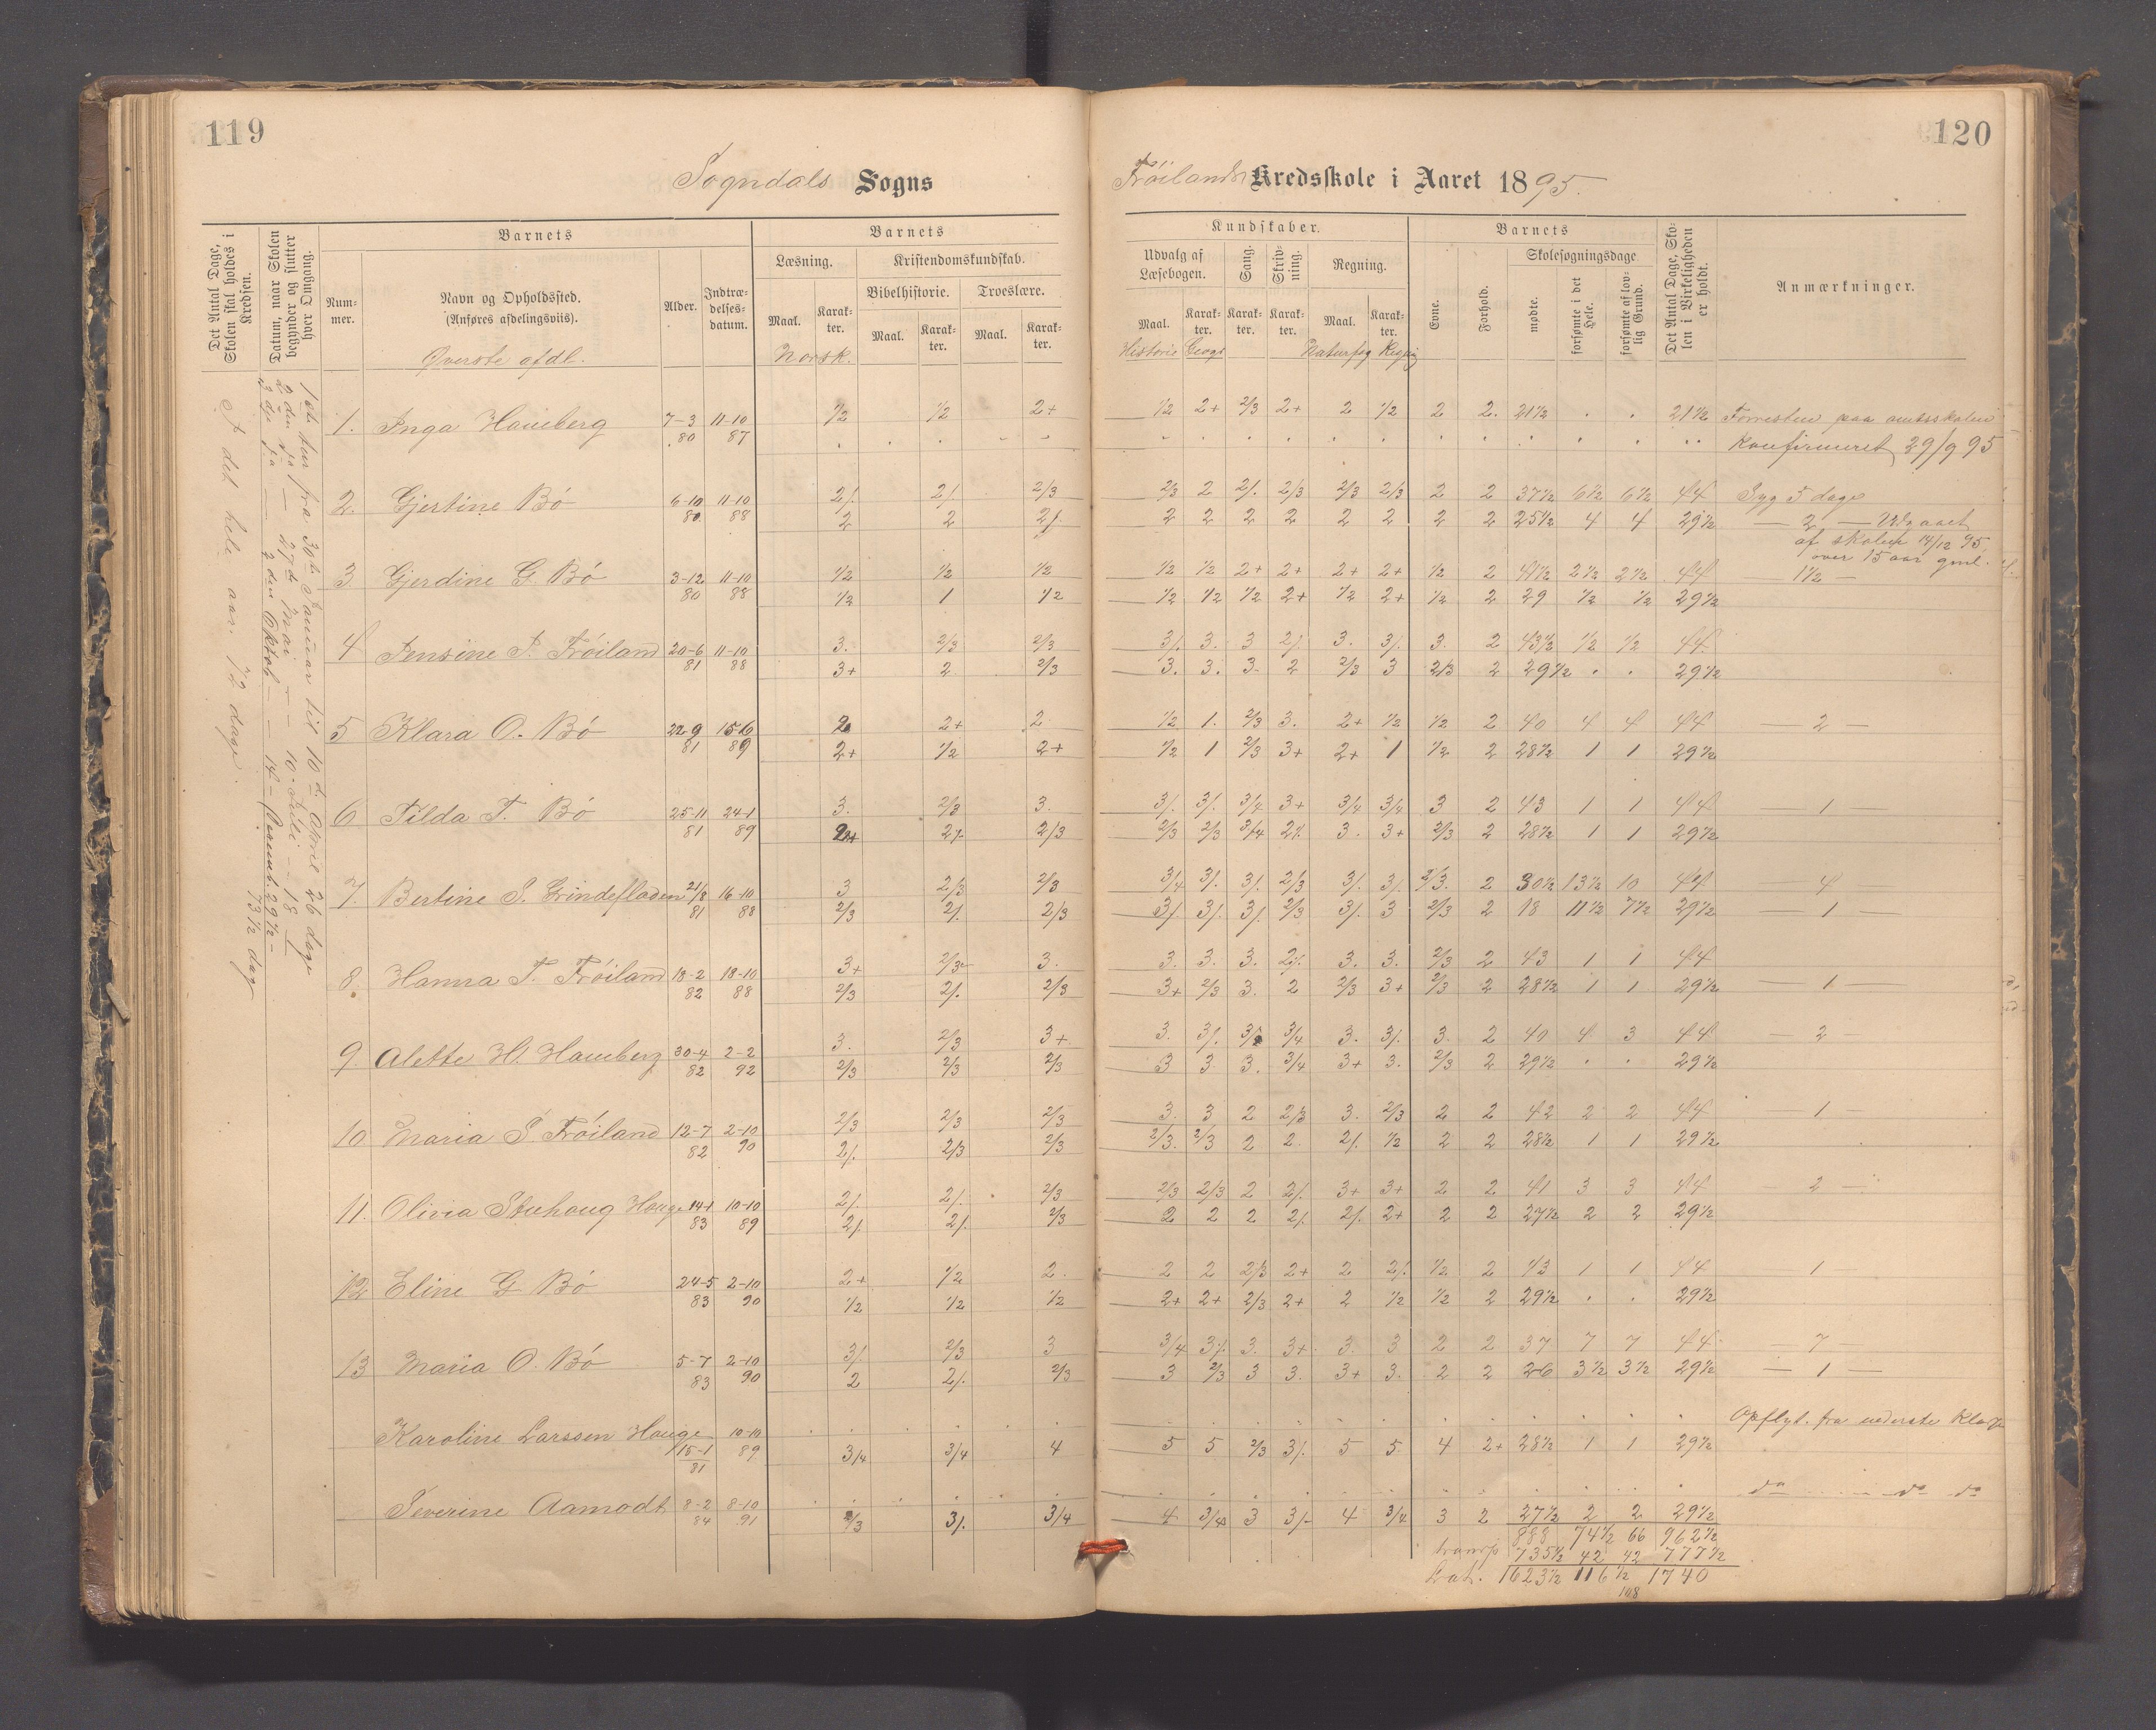 119
120
Sogndals Sogns
Frøilands Kredsskole i Aaret 1895.
Det Antal Dage, Skolen skal holdes i Kredsen.
Datum, naar Skolen begynder og slutter hver Omgang.
Barnets
Barnets
Kundskaber.
Barnets
Det Antal Dage, Skolen i Virkeligheden er holdt.
Anmærkninger.
Nummer.
Navn og Opholdssted.
(Anføres afdelingsviis).
Øverste afdl.
Alder.
Indtrædelsesdatum.
Læsning.
Kristendomskundskab.
Bibelhistorie.
Troeslære.
Maal.
Karakter.
Maal.
Karakter.
Maal.
Karakter.
Norsk.
Udvalg af Læsebogen.
Sang.
Skrivning.
Regning.
Maal.
Karakter.
Karakter.
Karakter.
Maal.
Karakter.
Historie Geogr
Naturfag
Evne.
Forhold.
Skolesøgningsdage
mødte.
forsømte i det Hele.
forsømte af lovlig Grund.
I det hele aar. 72 dage.
1ste tur fra 30te Januar til 10de April 26 dage
2den 27de Mai 10 Juli 18
73½ dag
1. Inga Haneberg 7-3 80 11-10 87
½ ½ 2+ ½ 2+ 2/3 2+ 2 ½ 2 2. 21½ . . 21½
paa amtsskolen
Konfirmeret 29/9 95
2. Gjertine Bö 6-10 80 11-10 88
2/. 2/. 2/3 2/3 2 2/. 2/3 2/3 2/3 2 2 37½ 6½ 6½ 44 Syg 5 dage
2 2 2/. 2 2 2 2 2 2 2 2 25½ 4 4 29½ — 2 —
af skolen 14/12 95.
over 15 aar gml.
3 Gjerdine G. Bö 3-12 80 11-10 88
½ ½ ½ ½ ½ 2+ 2+ 2+ 2+ ½ 2 41½ 2½ 2½ 44 — 1½ —
½ 1 ½ ½ ½ ½ 2+ ½ 2+ ½ 2 29 ½ ½ 29½
4 Jensine T. Fröiland 20-6 81 11-10 88
3. 2/3 2/3 3/. 3. 3 2/. 3. 3/. 3. 2 43½ ½ ½ 44
3+ 2 2/3 3. 3. 3. 2 2/3 3 2/3 2 29½ . . 29½
5 Klara O. Bö 22-9 81 15-6 89
2 2+ 2 ½ 1. 2/3 3. 2+ ½ ½ 2 40 4 4 44 — 2 —
2+ ½ 2+ ½ 1 2/3 3+ 2+ 1 ½ 2 28½ 1 1 29½
6 Tilda T. Bö 25-11 81 24-1 89
3. 2/3 3. 3/. 3/. 3/4 3+ 3/4 3/4 3 2 43 1 1 44 — 1 —
2+ 2/. 2/3 2/3 2/3 3/4 2/. 3. 3+ 2/3 2 28½ 1 1 29½
7. Bertine S. Grindefladen 21/8 81 16-10 88
3 2/3 2/3 3/4 3/. 3/. 2/3 3/. 3/. 2/3. 2 30½ 13½ 10 44 — 4 —
2/3 2/. 2/3 3/. 3/. 3/. 2/3 3/. 3 2/3 2 18 11½ 7½ 29½ — 1 —
8. Hanna T. Fröiland 18-2 82 18-10 88
3+ 2/3 3. 3. 3. 3. 2/. 3. 3. 2/3 2 43 1 1 44
2/3 2/. 2/3 3+ 2/3 3. 2 2/3 3+ 2/3 2 28½ 1 1 29½ — 1 —
9. Alette H. Haneberg 30-4 82 2-2 92
3. 2/3 3+ 3. 3/. 3/4 3. 3/. 3. 2 40 4 3 44 — 2 —
2/3 2/3 2/3 3 3 3. 3/4 3+ 3. 2/3 2 29½ . . 29½
10 Maria S Fröiland 12-7 82 2-10 90
2/3 2/3 2/3 3. 3 2 2/3 3. 2/3 2 2 42 2 2 44 — 1 —
2/. 2/3 2/3 2/3. 2/3 2 2 2/. ½ 2 2 28½ 1 1 29½
11. Olivia Stuhaug Hauge 14-1 83 10-10 89
2/. 2/. 2/3 2/3 2/3 2 2/. 3+ 3+ 2 2 41 3 3 44 — 2 —
2/. 2/. 2/3 2 2 2 2/. 2/. 2+ 2 2 27½ 2 2 29½
12 Eline G Bö 24-5 83 2-10 90
2+ ½ 2. 2 2 2/3 2+ 2 2/. ½ 2 43 1 1 44 1 —
½ ½ ½ 2+ 2+ 2/3 2+ 2 ½ ½ 2 29½ . . 29½
13 Maria O. Bö 5-7 83 2-10 90
3/. 2/3 3 3/4 3/. 3. 3+ 3. 3 2 2 37 7 7 44 — 7 —
2 2/. 2/3 3 2/3 3 3. 3+ 3. 2 2 26 3½ 3½ 29½ — 1 —
Karoline Larssen Hauge 15-1 81 10-10 89 Opflyt. fra nederste Klasse
3/4 3/4 4 5 5 2/3 3/. 5 5 4 2+ 28½ 1 1 29½
Severine Aamodt 8-2 84 8-10 91 do do do
2/3 3/. 3/4 4 3/4 3 3/. 4 3/4 3 2 27½ 2 2 29½
888 74½ 66 962½
transp 735½ 42 42 777½
Lat. 1623½ 116½ 1740
108